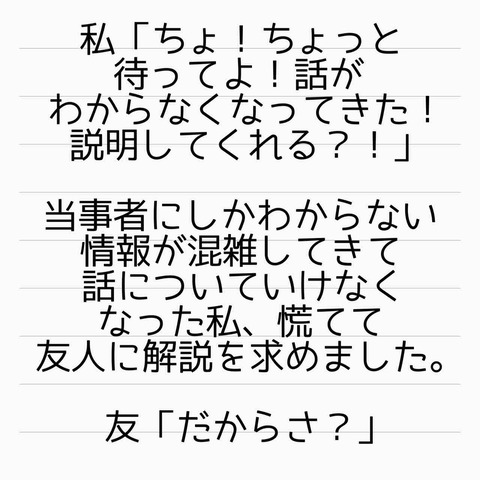 私「ちょ！ちょっと
待ってよ！話が
わからなくなってきた！
説明してくれる？！」
当事者にしかわからない
情報が混雑してきて
話についていけなく
なった私、慌てて
友人に解説を求めました。
友「だからさ？」